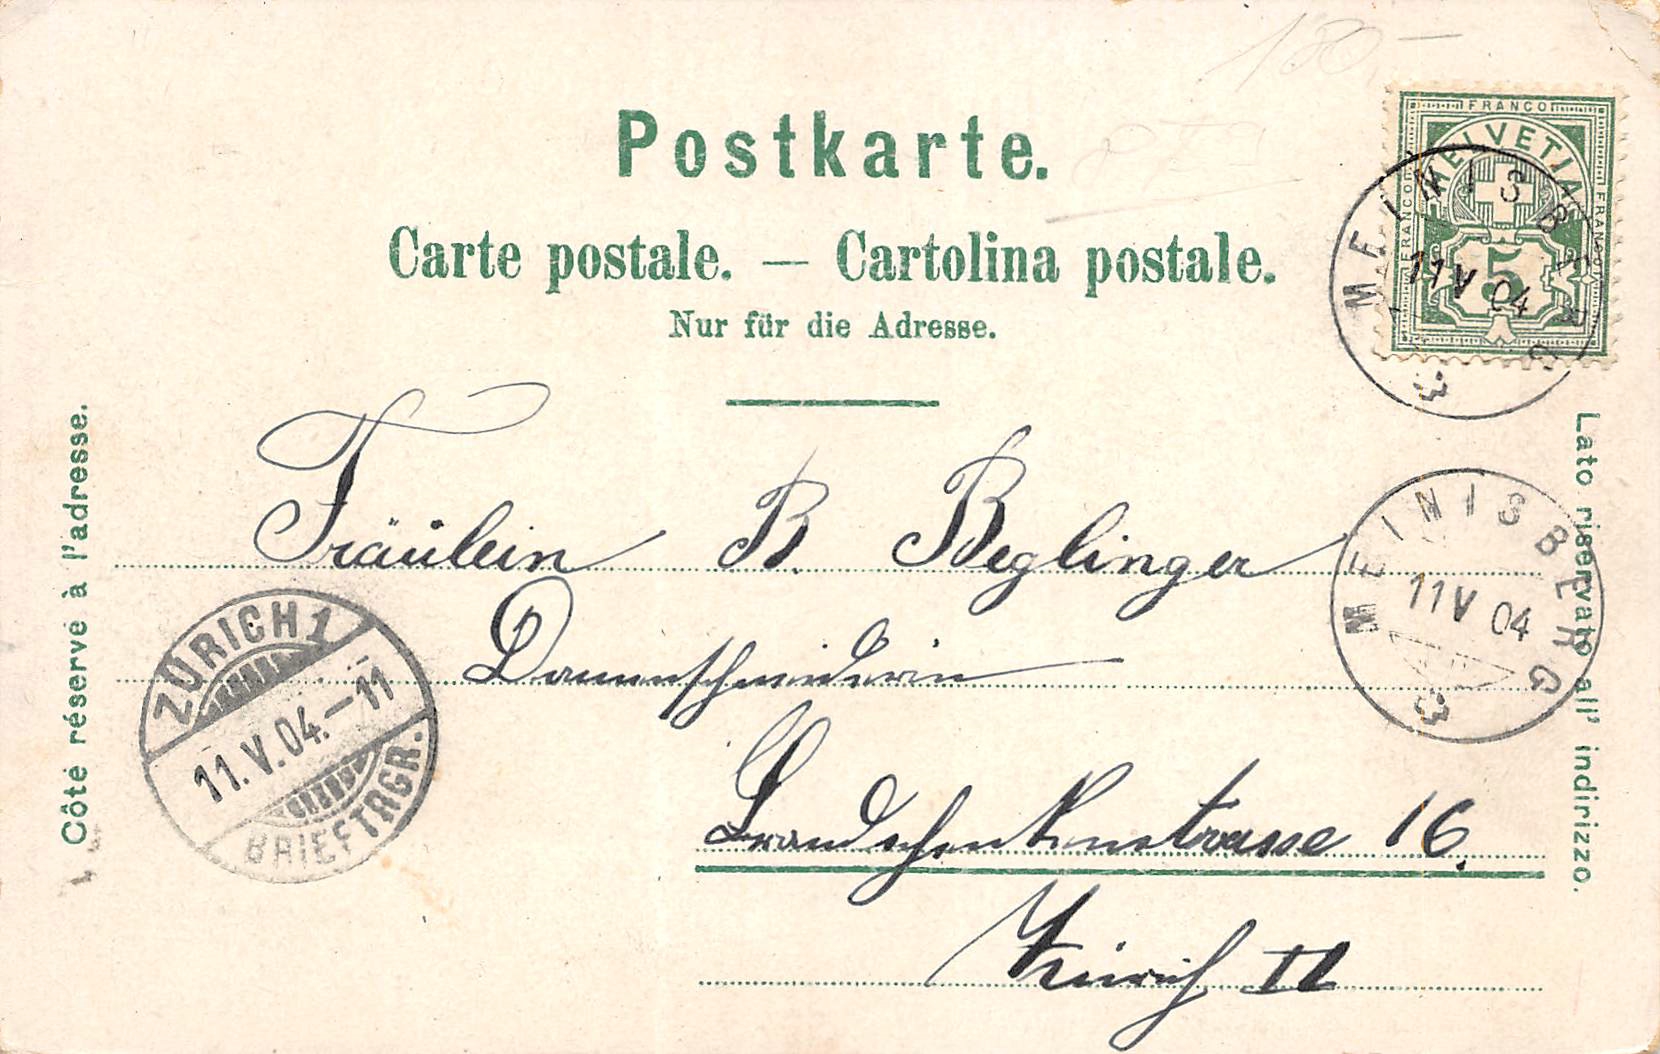 180.—
Postkarte.
Carte postale. — Cartolina postale.
Nur für die Adresse.
FRANCO
HELVETIA
FRANCO
FRANCO
5
MEINISBERG
11 V 04
Côté réservé à l'adresse.
Lato riservato all' indirizzo.
Fräulein B. Beglinger
Damenschneiderin
Brandschenkenstrasse 16.
Zürich II
MEINISBERG
11 V 04
ZÜRICH 1
11.V.04.–11
BRIEFTRGR.